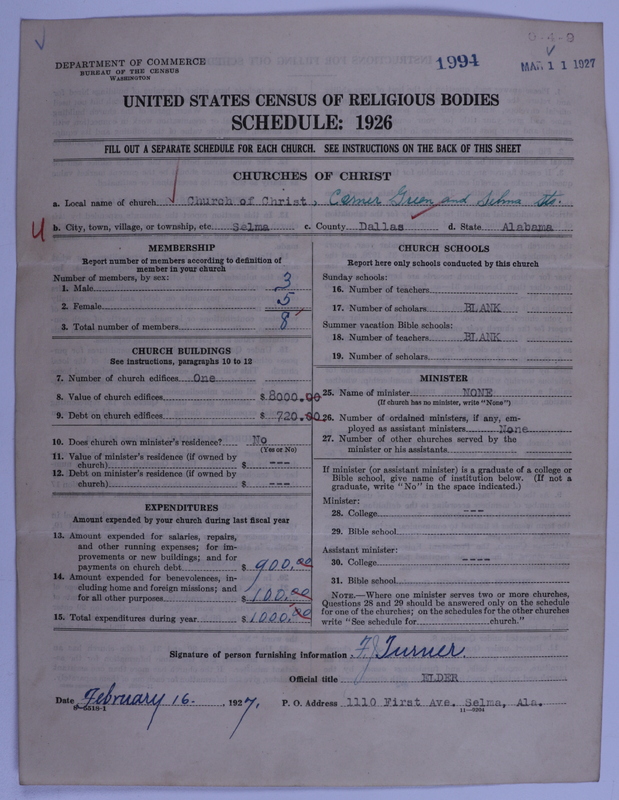 DEPARTMENT OF COMMERCE
BUREAU OF THE CENSUS
WASHINGTON
1994
9-4-9
MAR 11 1927
UNITED STATES CENSUS OF RELIGIOUS BODIES
SCHEDULE: 1926
FILL OUT A SEPARATE SCHEDULE FOR EACH CHURCH. SEE INSTRUCTIONS ON THE BACK OF THIS SHEET
CHURCHES OF CHRIST
a. Local name of church Church of Christ, Corner Green and Selma Sts.
4 b. City, town, village, or township, etc. Selma c. County Dallas d. State Alabama
MEMBERSHIP
Report number of members according to definition of
member in your church
Number of members, by sex:
1. Male 3
2. Female 5
3. Total number of members 8
CHURCH BUILDINGS
See instructions, paragraphs 10 to 12
7. Number of church edifices One
8. Value of church edifices $ 8000.00
9. Debt on church edifices $ 720.00
10. Does church own minister's residence? No
(Yes or No)
11. Value of minister's residence (if owned by
church) $ ---
12. Debt on minister's residence (if owned by
church) $ ---
EXPENDITURES
Amount expended by your church during last fiscal year
13. Amount expended for salaries, repairs,
and other running expenses; for im-
provements or new buildings; and for
payments on church debt $ 900.00
14. Amount expended for benevolences, in-
cluding home and foreign missions; and
for all other purposes $ 100.00
15. Total expenditures during year $ 1000.00
CHURCH SCHOOLS
Report here only schools conducted by this church
Sunday schools:
16. Number of teachers
17. Number of scholars BLANK
Summer vacation Bible schools:
18. Number of teachers BLANK
19. Number of scholars
MINISTER
25. Name of minister NONE
(If church has no minister, write "None")
26. Number of ordained ministers, if any, em-
ployed as assistant ministers None
27. Number of other churches served by the
minister or his assistants
If minister (or assistant minister) is a graduate of a college or
Bible school, give name of institution below. (If not a
graduate, write "No" in the space indicated.)
Minister:
28. College ---
29. Bible school
Assistant minister:
30. College ----
31. Bible school
NOTE.—Where one minister serves two or more churches,
Questions 28 and 29 should be answered only on the schedule
for one of the churches; on the schedules for the other churches
write "See schedule for church."
Signature of person furnishing information F J Turner
Official title ELDER
Date February 16, 1927. P. O. Address 1110 First Ave. Selma, Ala.
8-5518-1
11-9994